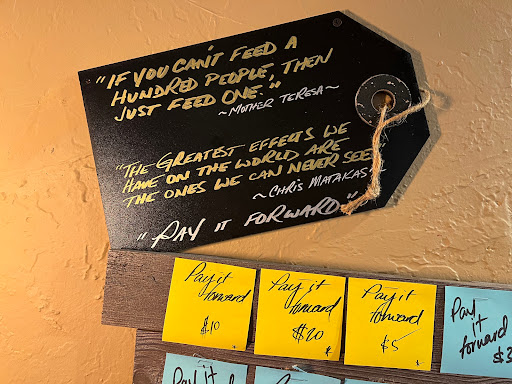 "IF YOU CAN'T FEED A
HUNDRED PEOPLE, THEN
JUST FEED ONE."
~MOTHER TERESA~
"THE GREATEST EFFECTS WE
HAVE ON THE WORLD ARE
THE ONES WE CAN NEVER SEE
~CHRIS MATAKAS
"PAY IT FORWARD"
Pay it
forward
$10
Pay it
forward
$20
Pay it
forward
$5
Pay
it
forward
$3
Pay it